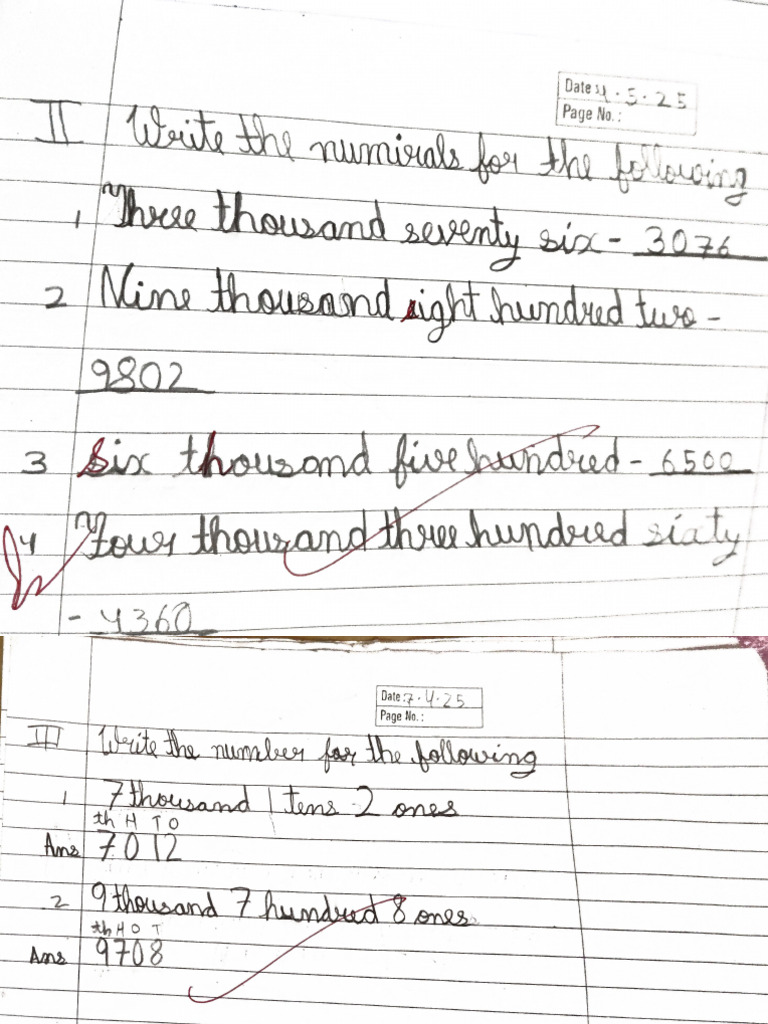 Date: 4.5.25
Page No.:
II Write the numirals for the following
1 Three thousand seventy six - 3076
2 Nine thousand eight hundred two -
9802
3 Six thousand five hundred - 6500
4 Four thousand three hundred sixty
- 4360
Date: 7.4.25
Page No.:
III Write the number for the following
1 7 thousand 1 tens 2 ones
th H T O
Ans 7012
2 9 thousand 7 hundred 8 ones
th H O T
Ans 9708